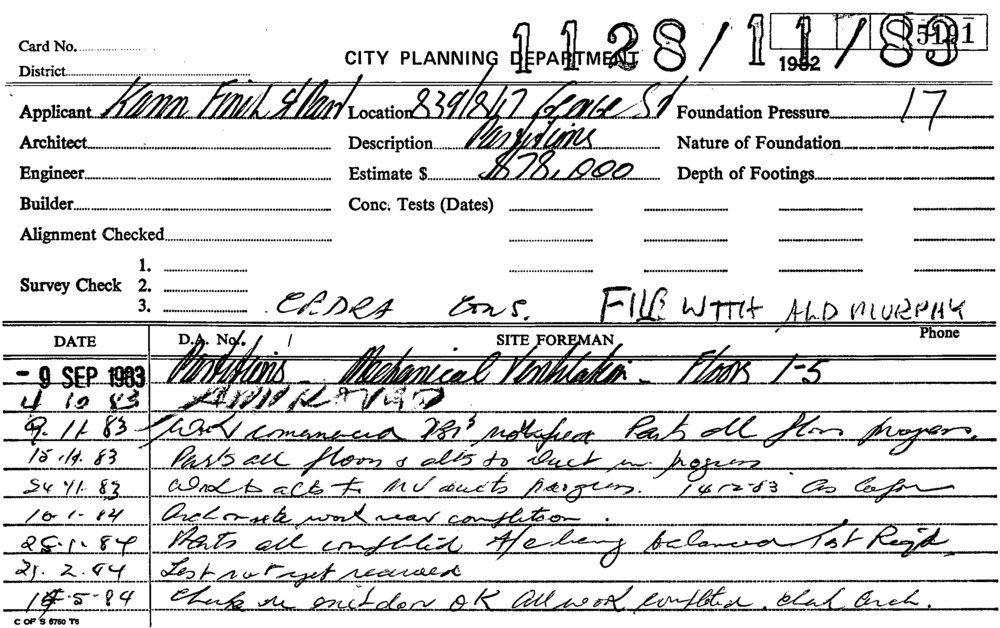 Card No. 1128/11/83 5191
CITY PLANNING DEPARTMENT 1982
District
Applicant Kann Finch & Part Location 839/847 George St Foundation Pressure 17
Architect Description Partitions Nature of Foundation
Engineer Estimate $ $78,000 Depth of Footings
Builder Conc. Tests (Dates)
Alignment Checked
1.
Survey Check 2.
3. CONS. FILE WITH ALD MURPHY
DATE D.A. No. SITE FOREMAN Phone
- 9 SEP 1983 Partitions - Mechanical Ventilation - Floors 1-5
4 10 83 APPROVED
9. 11. 83 Work commenced notified Parts all floors progress.
15. 11. 83 Parts all floors & alts to Duct in progress
24 11. 83 Work to alts to MV ducts progress. 14-2-83 As before
10. 1. 84 Arch on site work near completion.
25. 1. 84 Parts all completed A/c being balanced Test Req'd
21. 2. 84 Test not yet received
14. 5. 84 Check on exit door OK All work completed. Arch.
C OF S 6760 T6